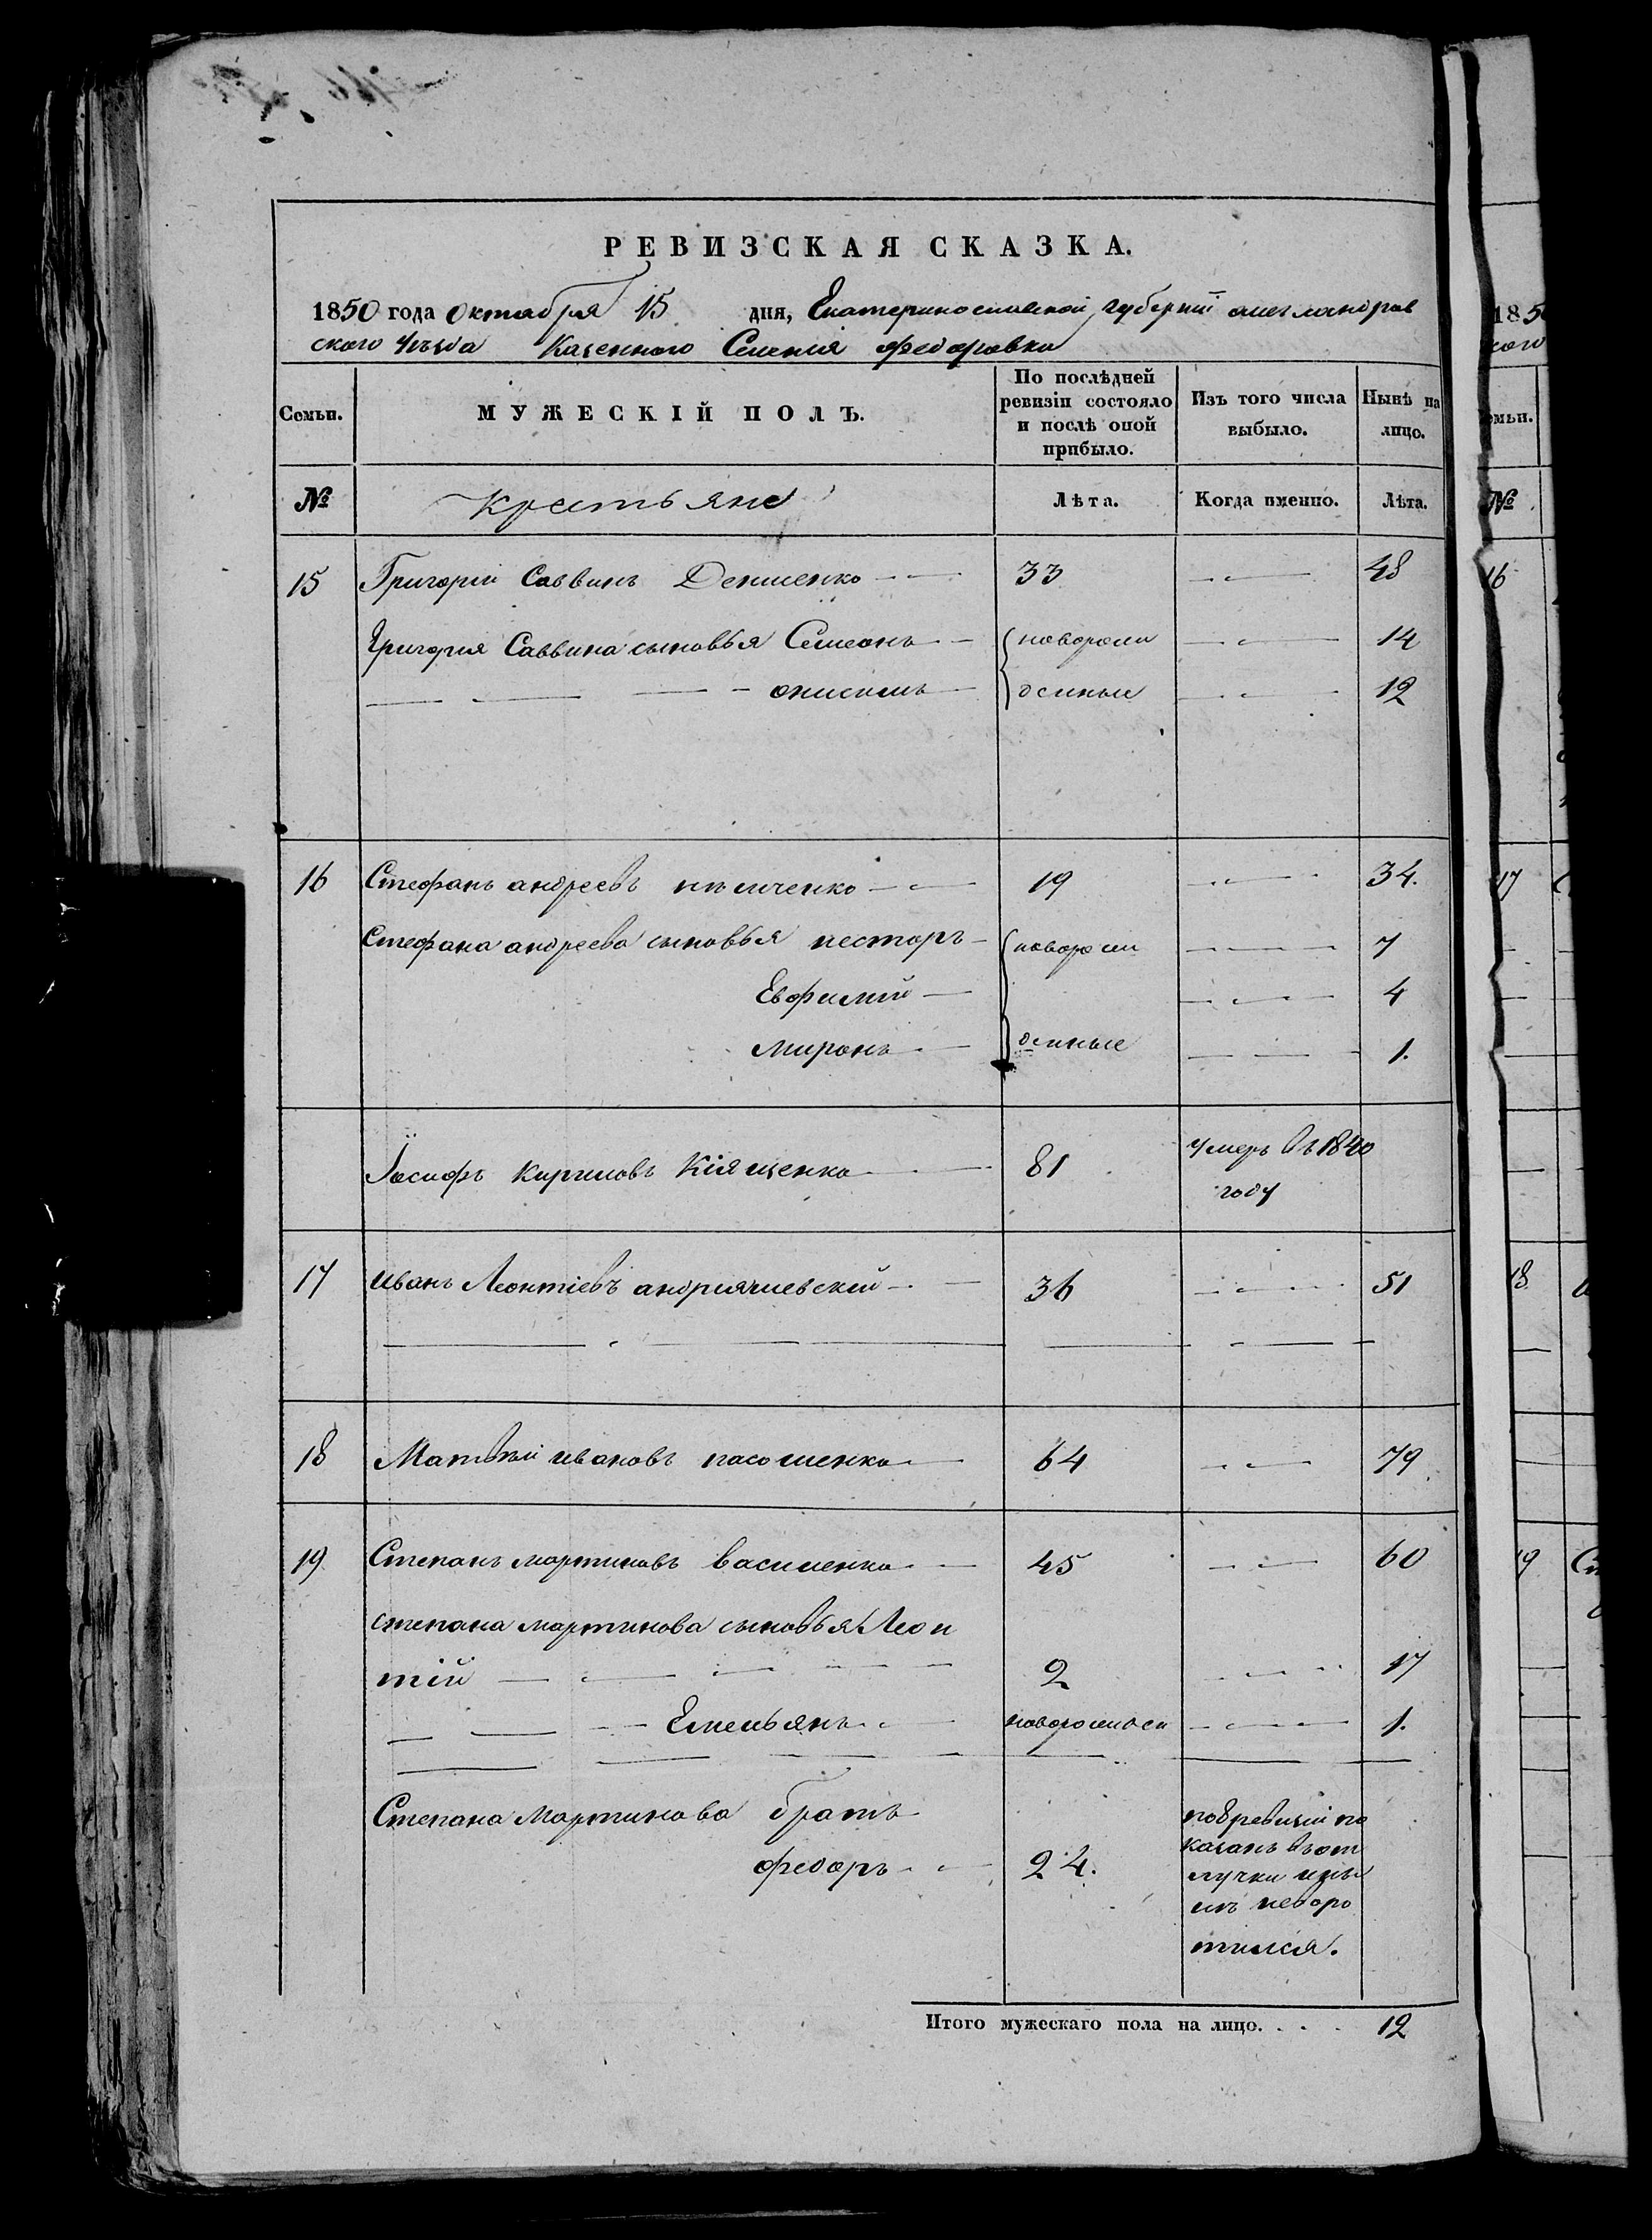 РЕВИЗСКАЯ СКАЗКА.
1850 года октября 15 дня, Екатеринославской губерніи александров
ского уѣзда Казенного Селенія федоровки
Семьи. МУЖЕСКІЙ ПОЛЪ. По послѣдней ревизіи состояло и послѣ оной прибыло. Изъ того числа выбыло. Нынѣ на лицо.
№ крестьяне Лѣта. Когда именно. Лѣта.
15 Григорій Саввинъ Денисенко 33 48
Григорія Саввина сыновья Семеонъ новорож 14
онисимъ денные 12
16 Стефанъ андреевъ 19 34.
Стефана андреева сыновья несторъ новорож 7
Евфимій 4
миронъ денные 1.
Іосифъ Кириловъ Кіященко 81 умеръ въ 1840
году
17 иванъ Леонтіевъ 36 51
18 Матвѣй ивановъ 64 79.
19 Степанъ мартиновъ василенко 45 60
степана мартинова сыновья Леон
тій 2 17
Емельянъ 1.
Степана Мартинова братъ
федоръ 24.
по 8 ревизіи по
казанъ въ от
лучки
неворо
тился.
Итого мужескаго пола на лицо. . . . 12
1850
16
17
18
19